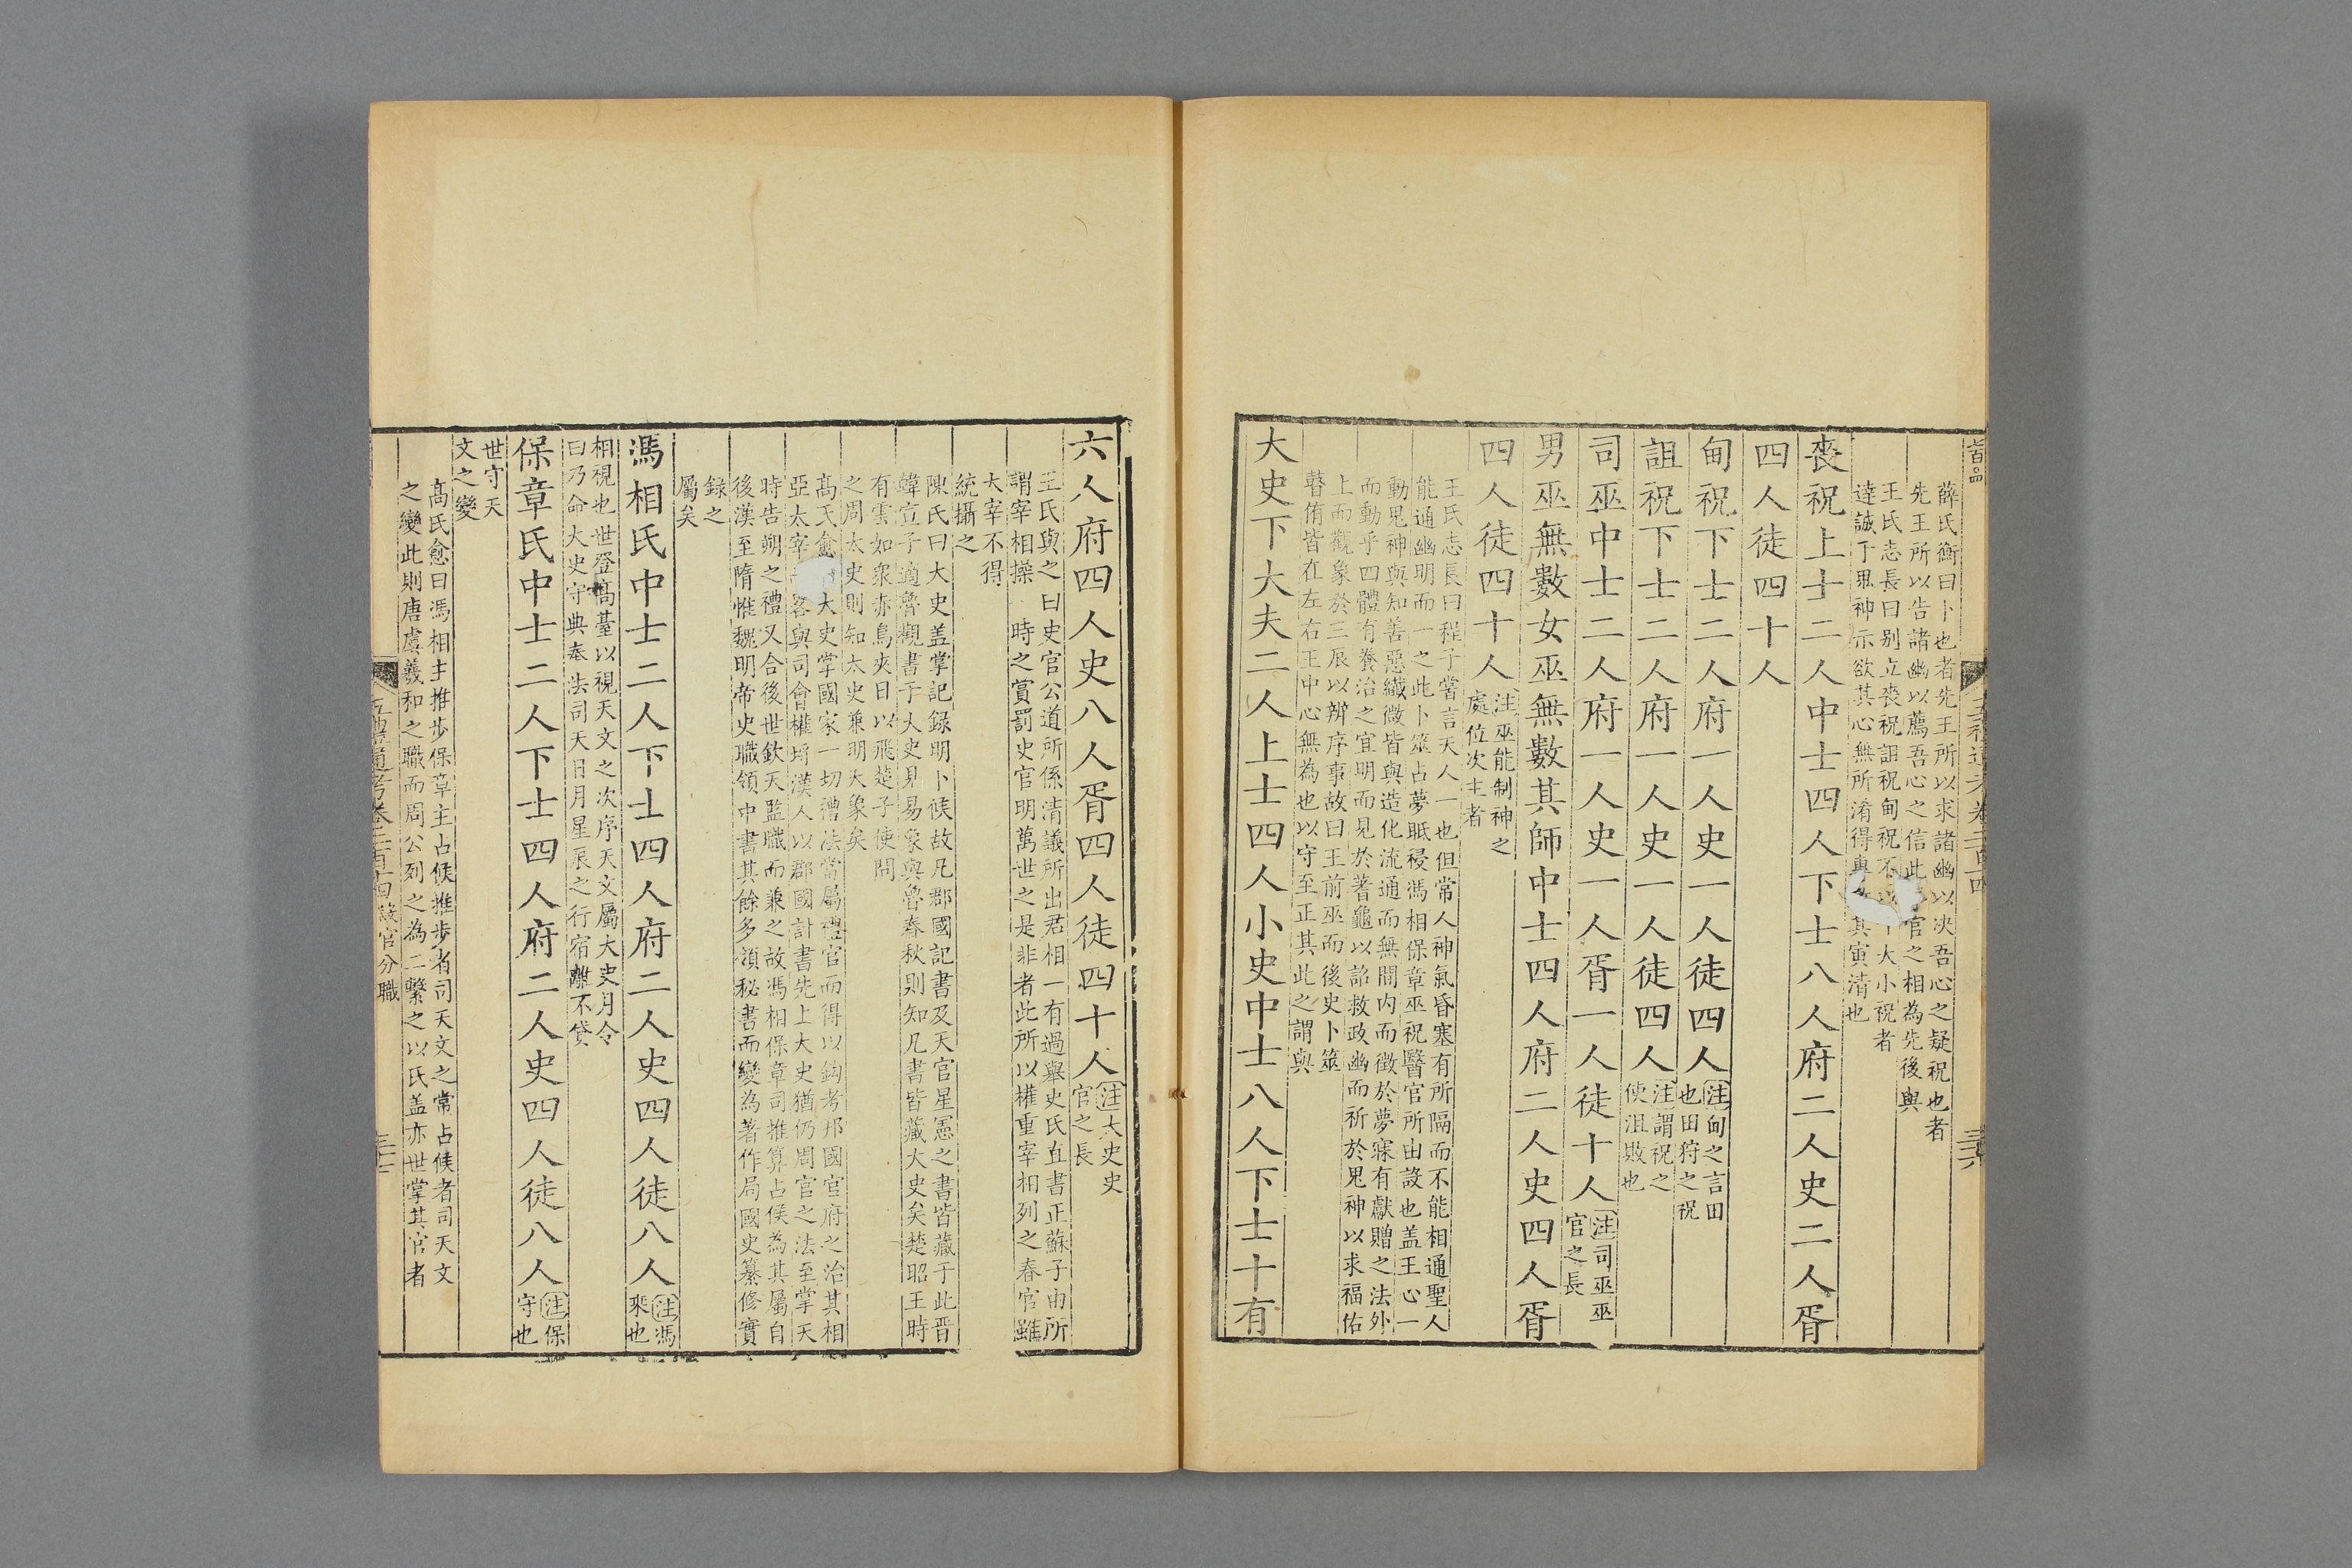 薛氏衡曰卜也者先王所以求諸幽以决吾心之疑祝也者
先王所以告諸幽以薦吾心之信此官之相為先後與
王氏志長曰别立喪祝詛祝甸祝不以大小祝者
達誠于鬼神示欲其心無所淆得專其寅清也
喪祝上士二人中士四人下士八人府二人史二人胥
四人徒四十人
甸祝下士二人府一人史一人徒四人注甸之言田
也田狩之祝
詛祝下士二人府一人史一人徒四人注謂祝之
使沮敗也
司巫中士二人府一人史一人胥一人徒十人注司巫巫
官之長
男巫無數女巫無數其師中士四人府二人史四人胥
四人徒四十人注巫能制神之
處位次主者
王氏志長曰程子嘗言天人一也但常人神氣昏塞有所隔而不能相通聖人
能通幽明而一之此卜筮占夢眡祲馮相保章巫祝醫官所由設也盖王心一
動鬼神與知善惡纎微皆與造化流通而無間内而徵於夢寐有獻贈之法外
而動乎四體有養治之宜明而見於蓍龜以詔救政幽而祈於鬼神以求福佑
上而觀象於三辰以辨序事故曰王前巫而後史卜筮
瞽侑皆在左右王中心無為也以守至正其此之謂與
大史下大夫二人上士四人小史中士八人下士十有
六人府四人史八人胥四人徒四十人注大史史
官之長
王氏與之曰史官公道所係清議所出君相一有過舉史氏直書正蘇子由所
謂宰相操一時之賞罰史官明萬世之是非者此所以權重宰相列之春官雖
大宰不得
統攝之
陳氏曰大史盖掌記録明卜候故凡郡國記書及天官星憲之書皆藏于此晋
韓宣子適魯觀書于大史見易象與魯春秋則知凡書皆藏大史矣楚昭王時
有雲如衆赤鳥夾日以飛楚子使問
之周太史則知太史兼明天象矣
高氏愈大史掌國家一切漕法當屬禮官而得以鈎考邦國官府之治其相
亞太宰客與司會權埒漢人以郡國計書先上大史猶仍周官之法至掌天
時告朔之禮又合後世欽天監職而兼之故馮相保章司推算占候為其屬自
後漢至隋惟魏明帝史職領中書其餘多領秘書而變為著作局國史纂修實
録之
屬矣
馮相氏中士二人下士四人府二人史四人徒八人注馮
乘也
相視也世登高臺以視天文之次序天文屬大史月令
曰乃命大史守典奉法司天日月星辰之行宿離不貸
保章氏中士二人下士四人府二人史四人徒八人注保
守也
世守天
文之變
高氏愈曰馮相主推步保章主占候推步者司天文之常占候者司天文
之變此則唐虞羲和之職而周公列之為二繫之以氏盖亦世掌其官者
五禮通考卷二百十四設官分職
三十七